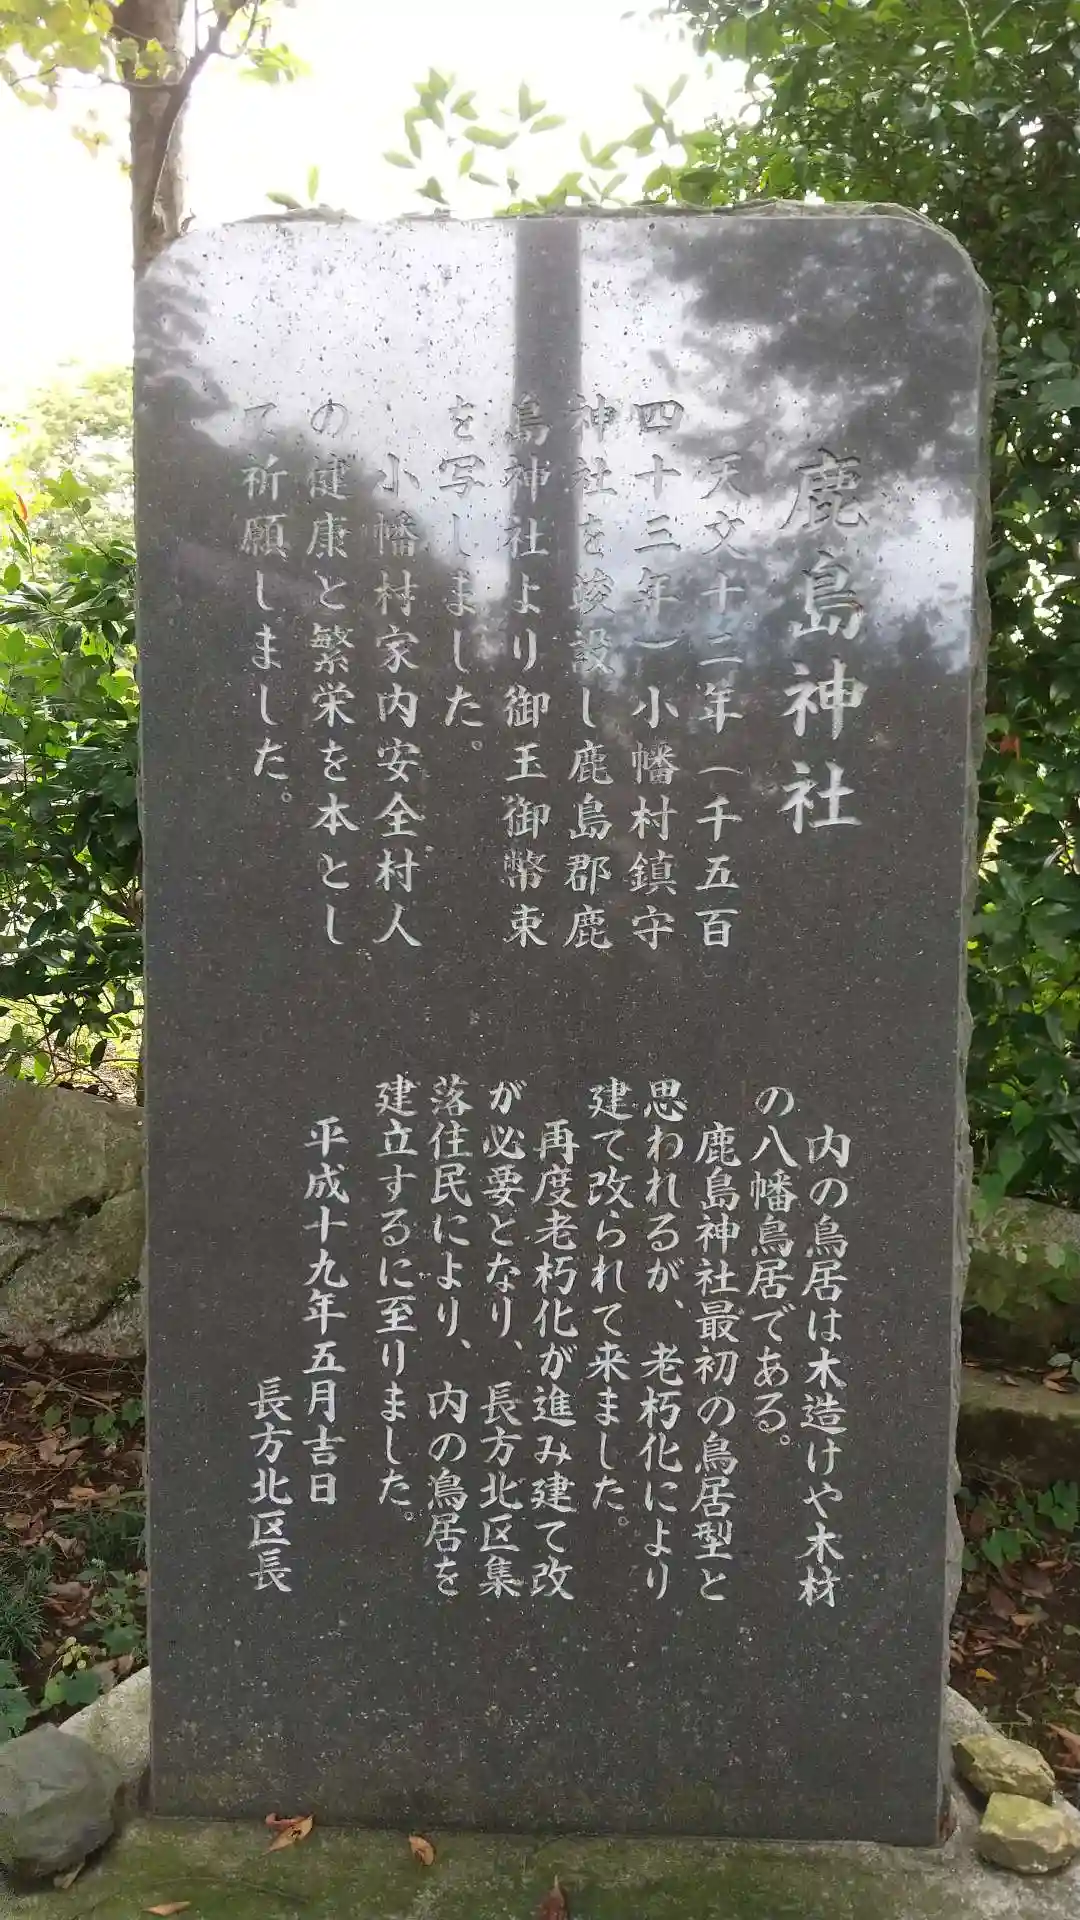 鹿島神社
天文十二年(千五百
四十三年)小幡村鎮守
神社を竣設し鹿島郡鹿
島神社より御玉御幣束
を写しました。
小幡村家内安全村人
の健康と繁栄を本とし
て祈願しました。
内の鳥居は木造けや木材
の八幡鳥居である。
鹿島神社最初の鳥居型と
思われるが、老朽化により
建て改られて来ました。
再度老朽化が進み建て改
が必要となり、長方北区集
落住民により、内の鳥居を
建立するに至りました。
平成十九年五月吉日
長方北区長